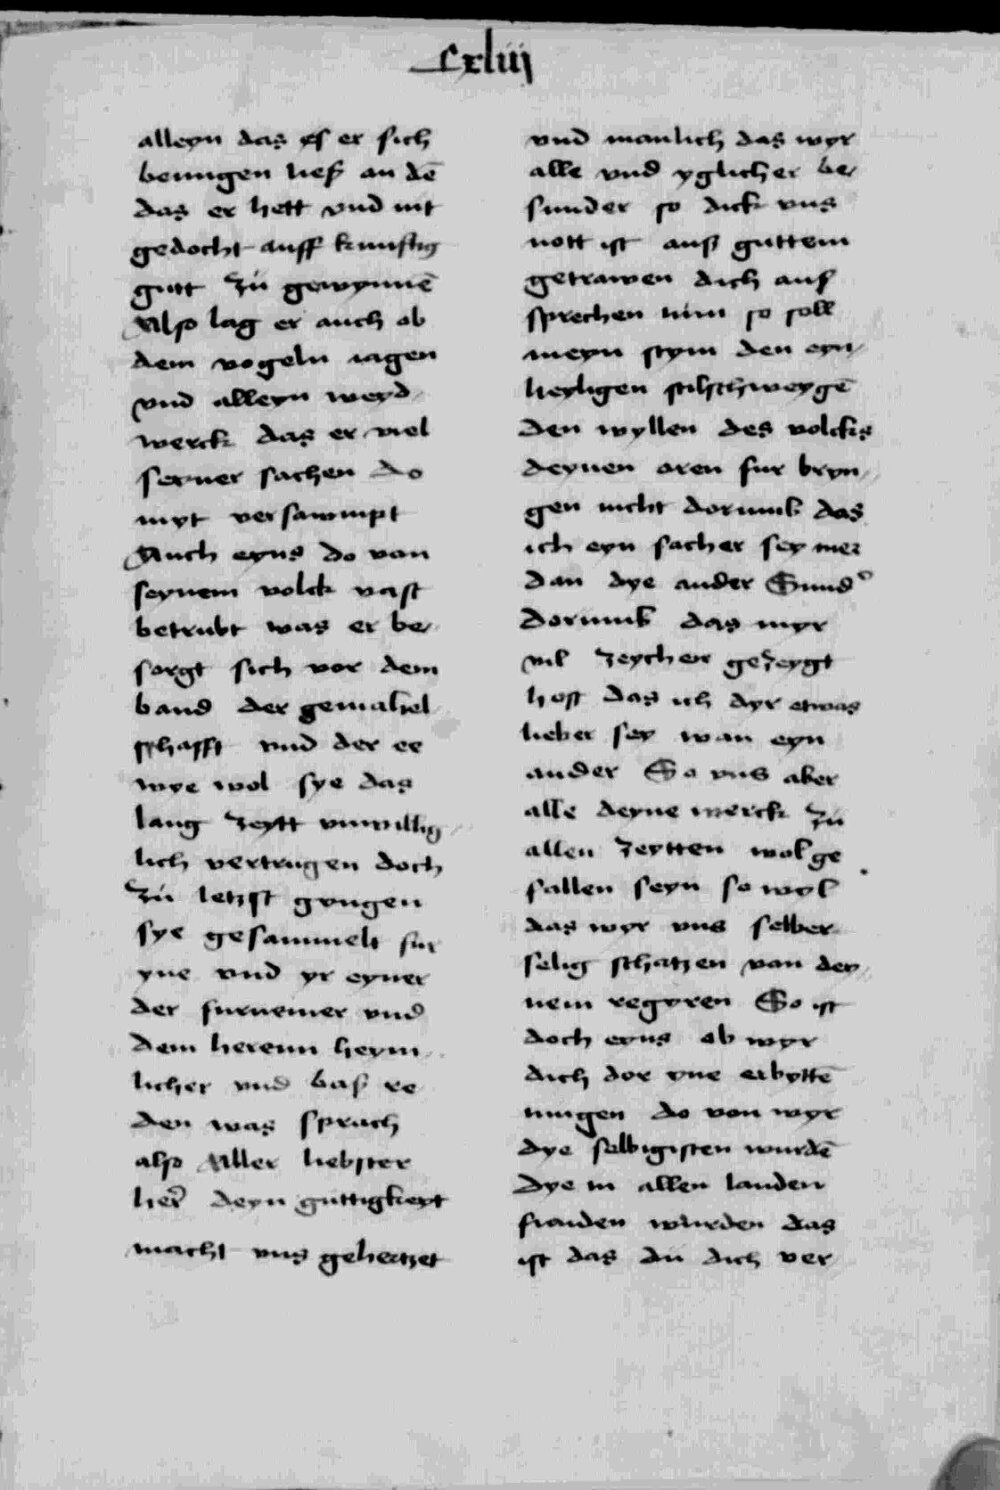 cxliij
alleyn das es er sich
benugen lies an dē
das er hett vnd nit
gedocht auff kunftig
gutt zů gewynnē
Also lag er auch ob
dem vogeln iagen
vnd alleyn weyd
werck das er viel
seyner sachen do
myt versawmpt
Auch eyns do von
seynem volck vast
betrubt was er be
sorgt sich vor dem
band der gemahel
schafft vnd der ee
wye wol sye das
lang zeytt vnwillig
lich vertrugen doch
zů letzst gyngen
sye gesammelt fur
yne vnd yr eyner
der furnemer vnd
dem herenn heym
licher vnd bas re
den was sprach
also Aller liebster
her̄ deyn guttigkeyt
macht vns gehertzet
vnd manlich das wyr
alle vnd yglicher be
sunder so dick vns
nott ist auß guttem
getrawen dich anß
sprechen nim so soll
meyn stym den eyn
heyligen stilschweygē
den wyllen des volcks
deynen oren fur bryn
gen nicht dorumb das
ich eyn sacher sey mer
dan dye ander Sund'
dorumb das myr
vil zeychen gezeygt
host das ich dyr etwas
lieber sey wan eyn
ander So vns aber
alle deyne werck zů
allen zeytten wolge
fallen seyn so wol
das wyr vns selber
selig schatzen von dey
nem regyren So ist
doch eyns ob wyr
dich dor yne erbyttē
mugen do von wyr
dye selbigisten wurdē
dye in allen landen
funden wurden das
ist das du dich ver